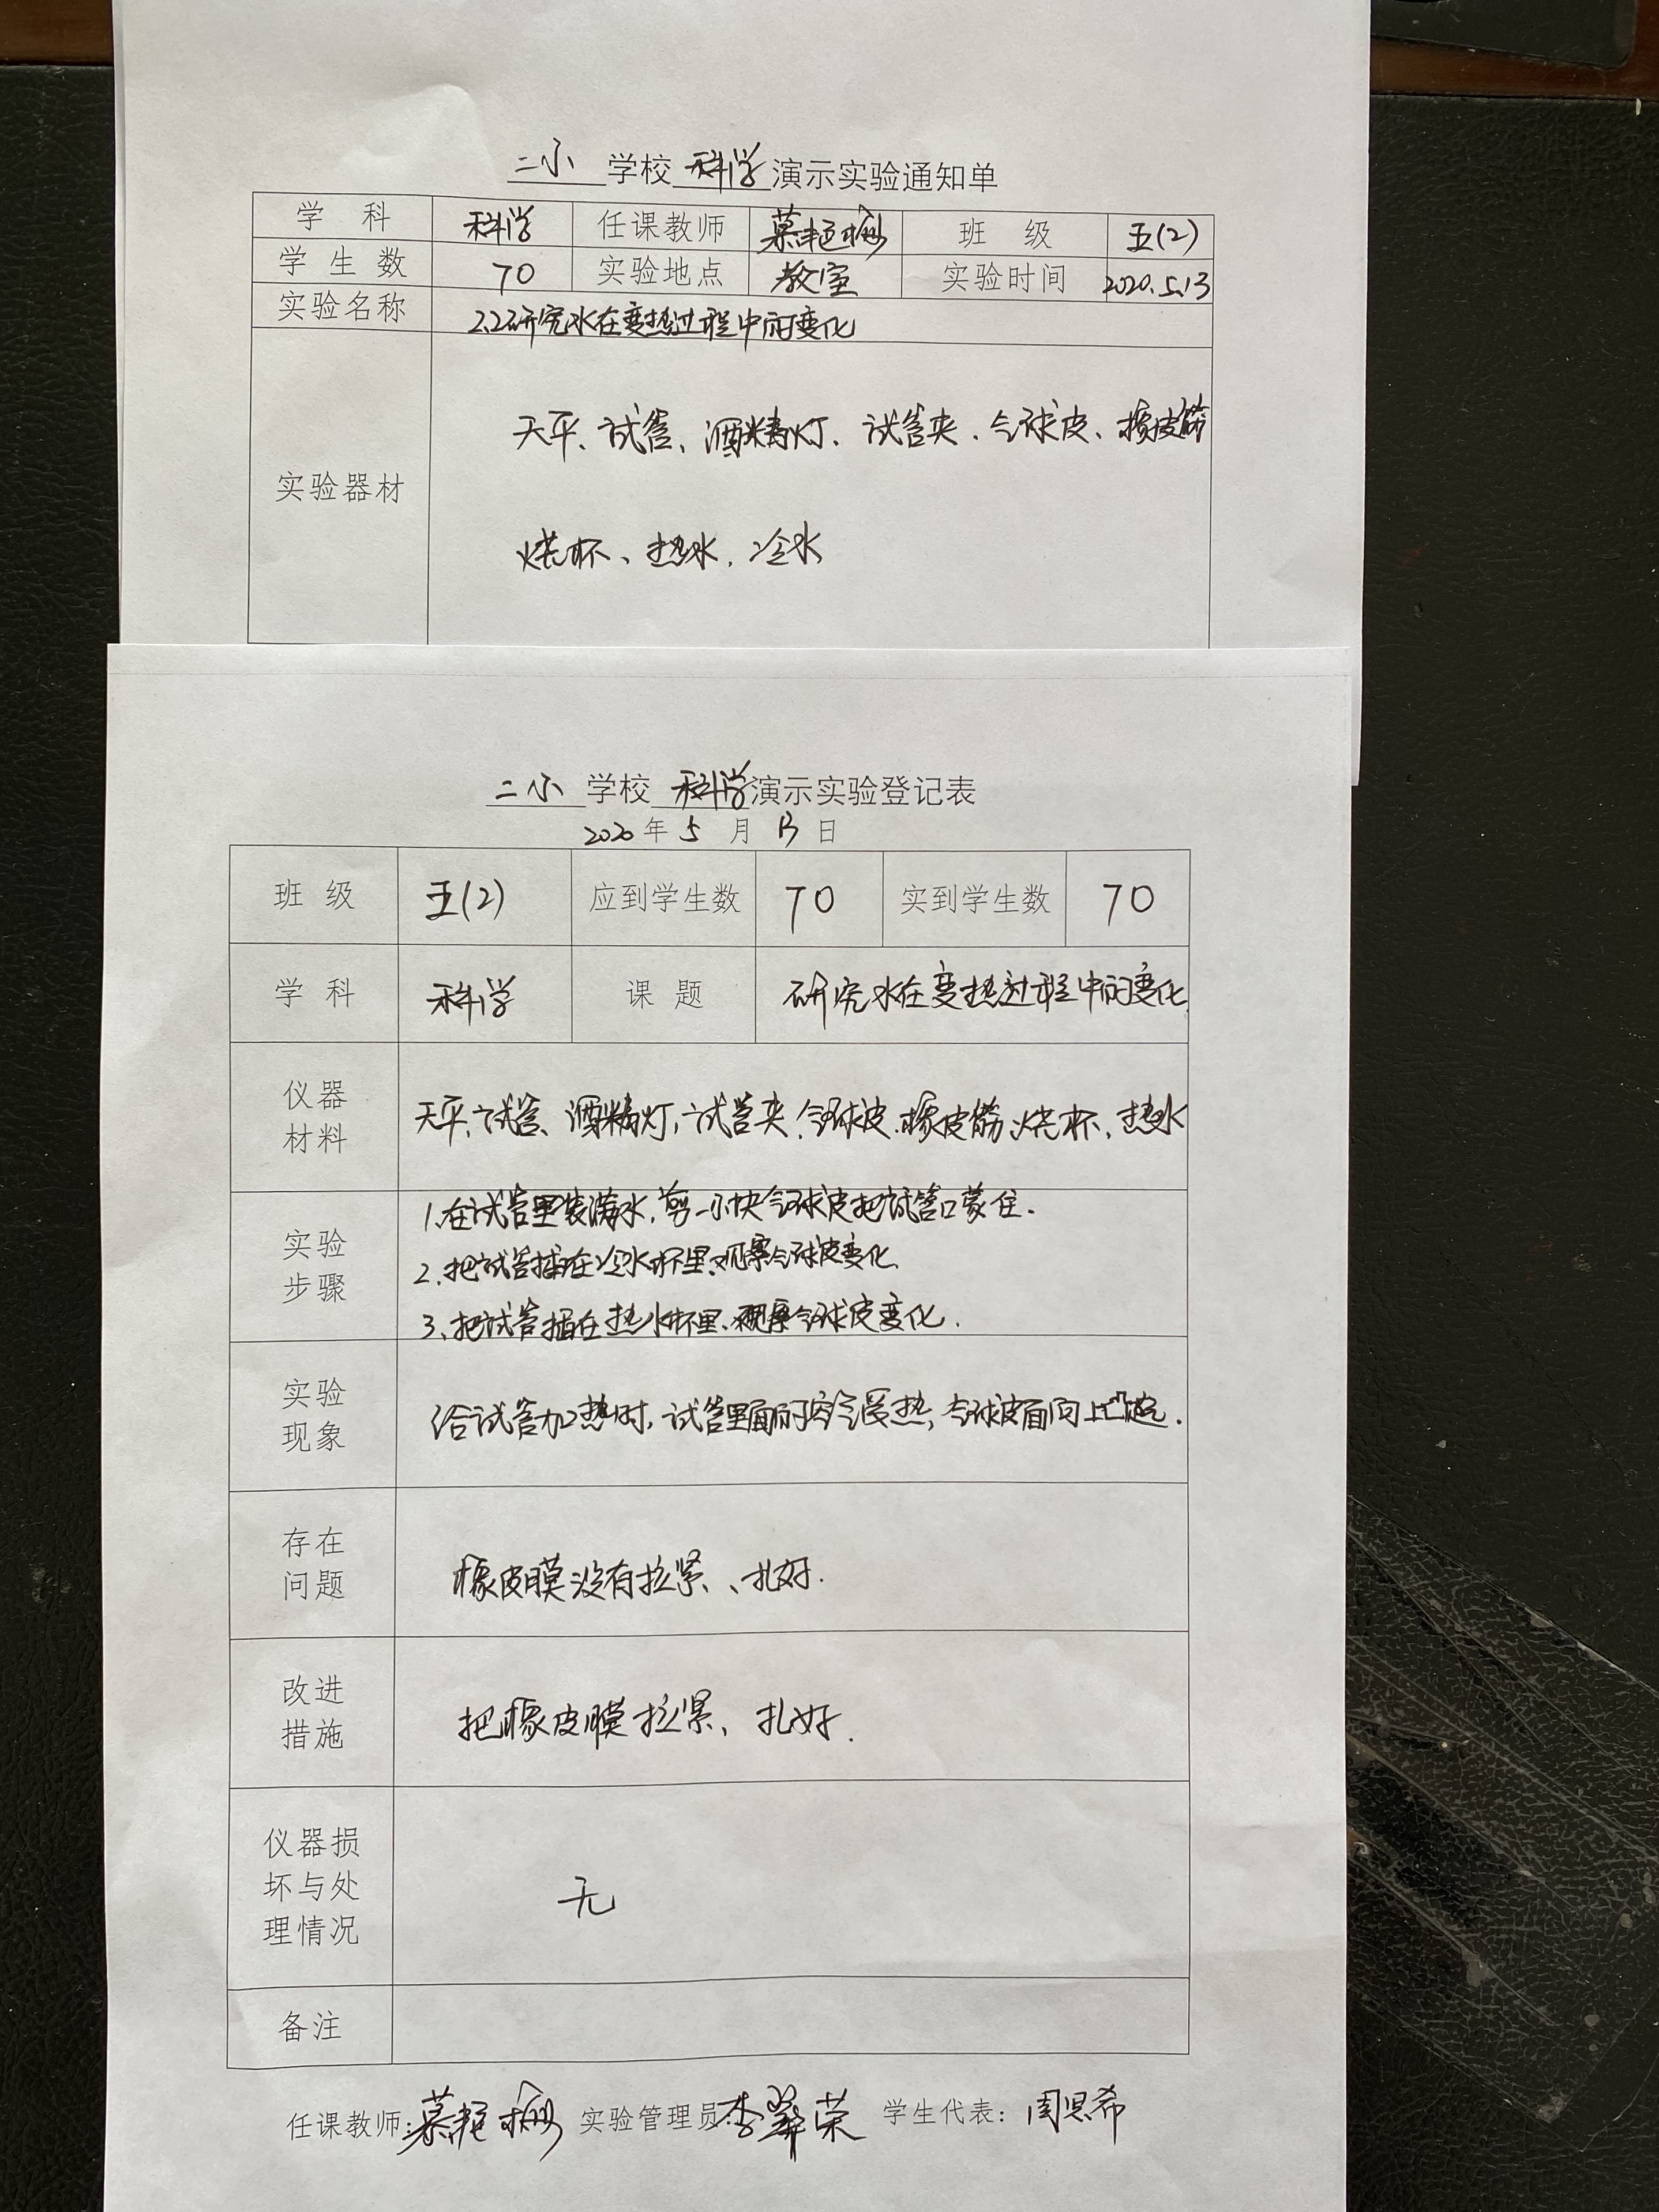 二小 学校 科学 演示实验通知单
学 科 科学 任课教师 慕艳梅 班 级 五(2)
学 生 数 70 实验地点 教室 实验时间 2020.5.13
实验名称 2.2研究水在变热过程中的变化
天平、试管、酒精灯、试管夹、气球皮、橡皮筋
实验器材
烧杯、热水、冷水
二小 学校 科学 演示实验登记表
2020 年 5 月 13 日
班 级 五(2) 应到学生数 70 实到学生数 70
学 科 科学 课 题 研究水在变热过程中的变化
仪器
材料
天平、试管、酒精灯、试管夹、气球皮、橡皮筋、烧杯、热水
实验
步骤
1、在试管里装满水,剪一小块气球皮把试管口蒙住.
2、把试管插在冷水杯里、观察气球皮变化.
3、把试管插在热水杯里、观察气球皮变化.
实验
现象
给试管加热时,试管里面的空气受热,气球皮面向上凸起.
存在
问题
橡皮膜没有拉紧、、扎好.
改进
措施
把橡皮膜拉紧、扎好.
仪器损
坏与处
理情况
无
备注
任课教师:慕艳梅 实验管理员 李翠荣 学生代表: 周思希